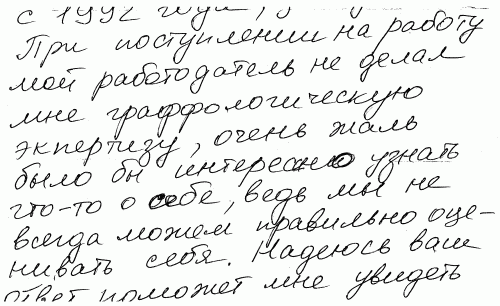 с 1992 года,
При поступлении на работу
мой работодатель не делал
мне граффологическую
экпертизу, очень жаль
было бы интересно узнать
что-то о себе, ведь мы не
всегда можем правильно оце-
нивать себя. Надеюсь ваш
ответ поможет мне увидеть